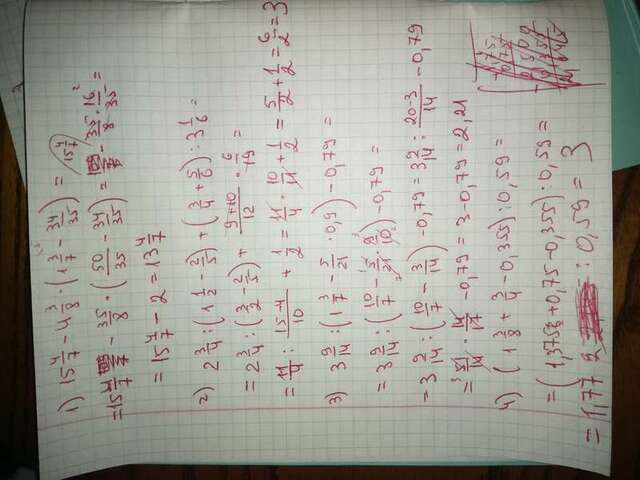 1) 15 4/7 - 4 3/8 · (1 3/7 - 34/35) =
15 4/7
= 15 4/7 - 35/8 · (50/35 - 34/35) = - 35/8 · 16/35 =
= 15 4/7 - 2 = 13 4/7
2) 2 3/4 : (1 1/2 - 2/5) + (3/4 + 5/6) : 3 1/6 =
= 2 3/4 : (3/2 - 2/5) + 9+10/12 · 6/19 =
= 11/4 : 15-4/10 + 1/2 = 11/4 · 10/11 + 1/2 = 5/2 + 1/2 = 6/2 = 3
3) 3 9/14 : (1 3/7 - 5/21 · 0,9) - 0,79 =
= 3 9/14 : (10/7 - 5/21 · 9/10) - 0,79 =
= 3 9/14 : (10/7 - 3/14) - 0,79 = 3 9/14 : 20-3/14 - 0,79
= 51/14 · 14/17 - 0,79 = 3 - 0,79 = 2,21
4) (1 3/8 + 3/4 - 0,355) : 0,59 =
= (1,375 + 0,75 - 0,355) : 0,59 =
= 1,77 : 0,59 = 3